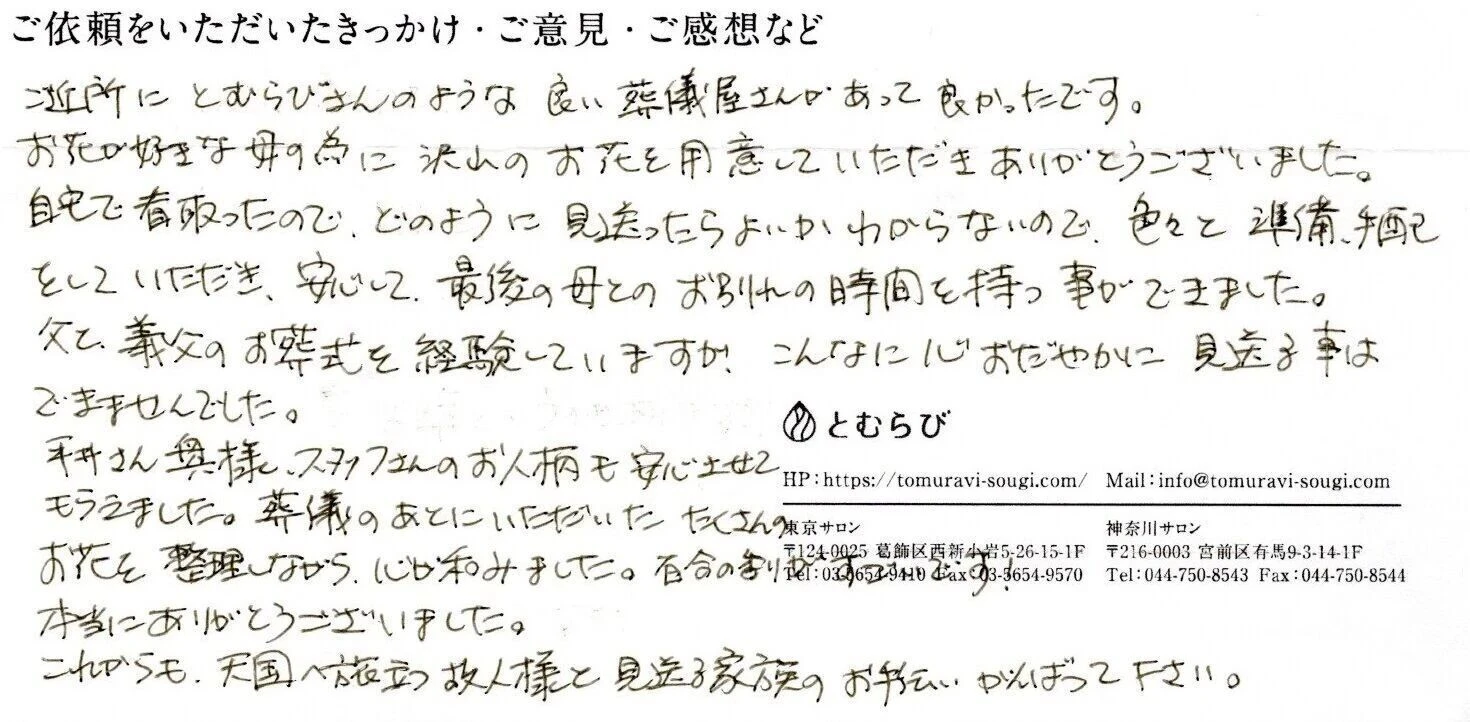 ご依頼をいただいたきっかけ・ご意見・ご感想など
ご近所に とむらびさんのような 良い 葬儀屋さんが あって 良かったです。
お花が好きな母の為に 沢山の お花を用意して いただき ありがとうございました。
自宅で看取ったので、どのように 見送ったらよいか わからないので、色々と 準備、手配
をして いただき、安心して、最後の母との お別れの時間を持つ 事ができました。
父と、義父の お葬式を 経験していますが、こんなに心おだやかに 見送る事は
できませんでした。
平井さん 奥様と、スタッフさんの お人柄も 安心させて
もらえました。葬儀の あとに いただいた たくさんの
お花を 整理しながら、心が和みました。百合の香りが すごいです!
本当にありがとうございました。
これからも、天国へ旅立つ 故人様と 見送る家族の お手伝い がんばって 下さい。
とむらび
HP:https://tomuravi-sougi.com/ Mail:info@tomuravi-sougi.com
東京サロン
〒124-0025 葛飾区西新小岩5-26-15-1F
Tel:03-5654-9410 Fax:03-5654-9570
神奈川サロン
〒216-0003 宮前区有馬9-3-14-1F
Tel:044-750-8543 Fax:044-750-8544